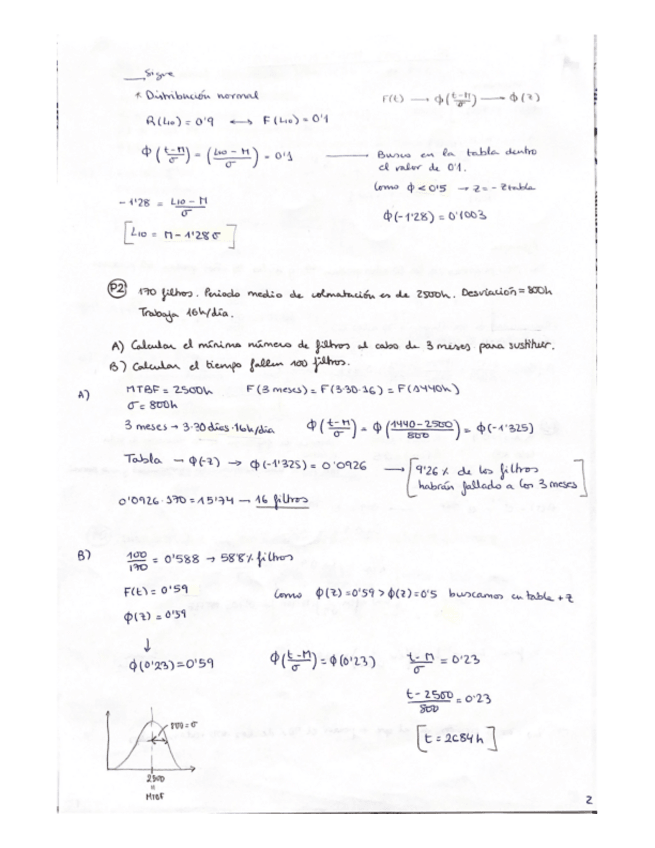 Sigue
* Distribución normal
F(t) → ϕ(t-M/σ) → ϕ(z)
R(L10) = 0'9 ↔ F(L10) = 0'1
ϕ(t-M/σ) = (L10-M/σ) = 0'1 — Busco en la tabla dentro
el valor de 0'1.
Como ϕ < 0'5 → z = - ztabla
-1'28 = L10-M/σ
ϕ(-1'28) = 0'1003
[L10 = M - 1'28σ]
P2 170 filtros. Periodo medio de colmatación es de 2500h. Desviación = 800h
Trabaja 16h/día.
A) Calcular el mínimo número de filtros al cabo de 3 meses para sustituir.
B) Calcular el tiempo fallen 100 filtros.
A) MTBF = 2500h F(3 meses) = F(3·30·16) = F(1440h)
σ = 800h
3 meses → 3·30 días·16h/día ϕ(t-M/σ) = ϕ(1440-2500/800) = ϕ(-1'325)
Tabla → ϕ(-z) → ϕ(-1'325) = 0'0926 → [9'26% de los filtros
habrán fallado a los 3 meses]
0'0926·170 = 15'74 → 16 filtros
B) 100/170 = 0'588 → 58'8% filtros
F(t) = 0'59 Como ϕ(z) = 0'59 > ϕ(z) = 0'5 buscamos en tabla + z
ϕ(z) = 0'59
↓
ϕ(0'23) = 0'59 ϕ(t-M/σ) = ϕ(0'23) t-M/σ = 0'23
t-2500/800 = 0'23
[t = 2684h]
= σ
2500
=
MTBF
2